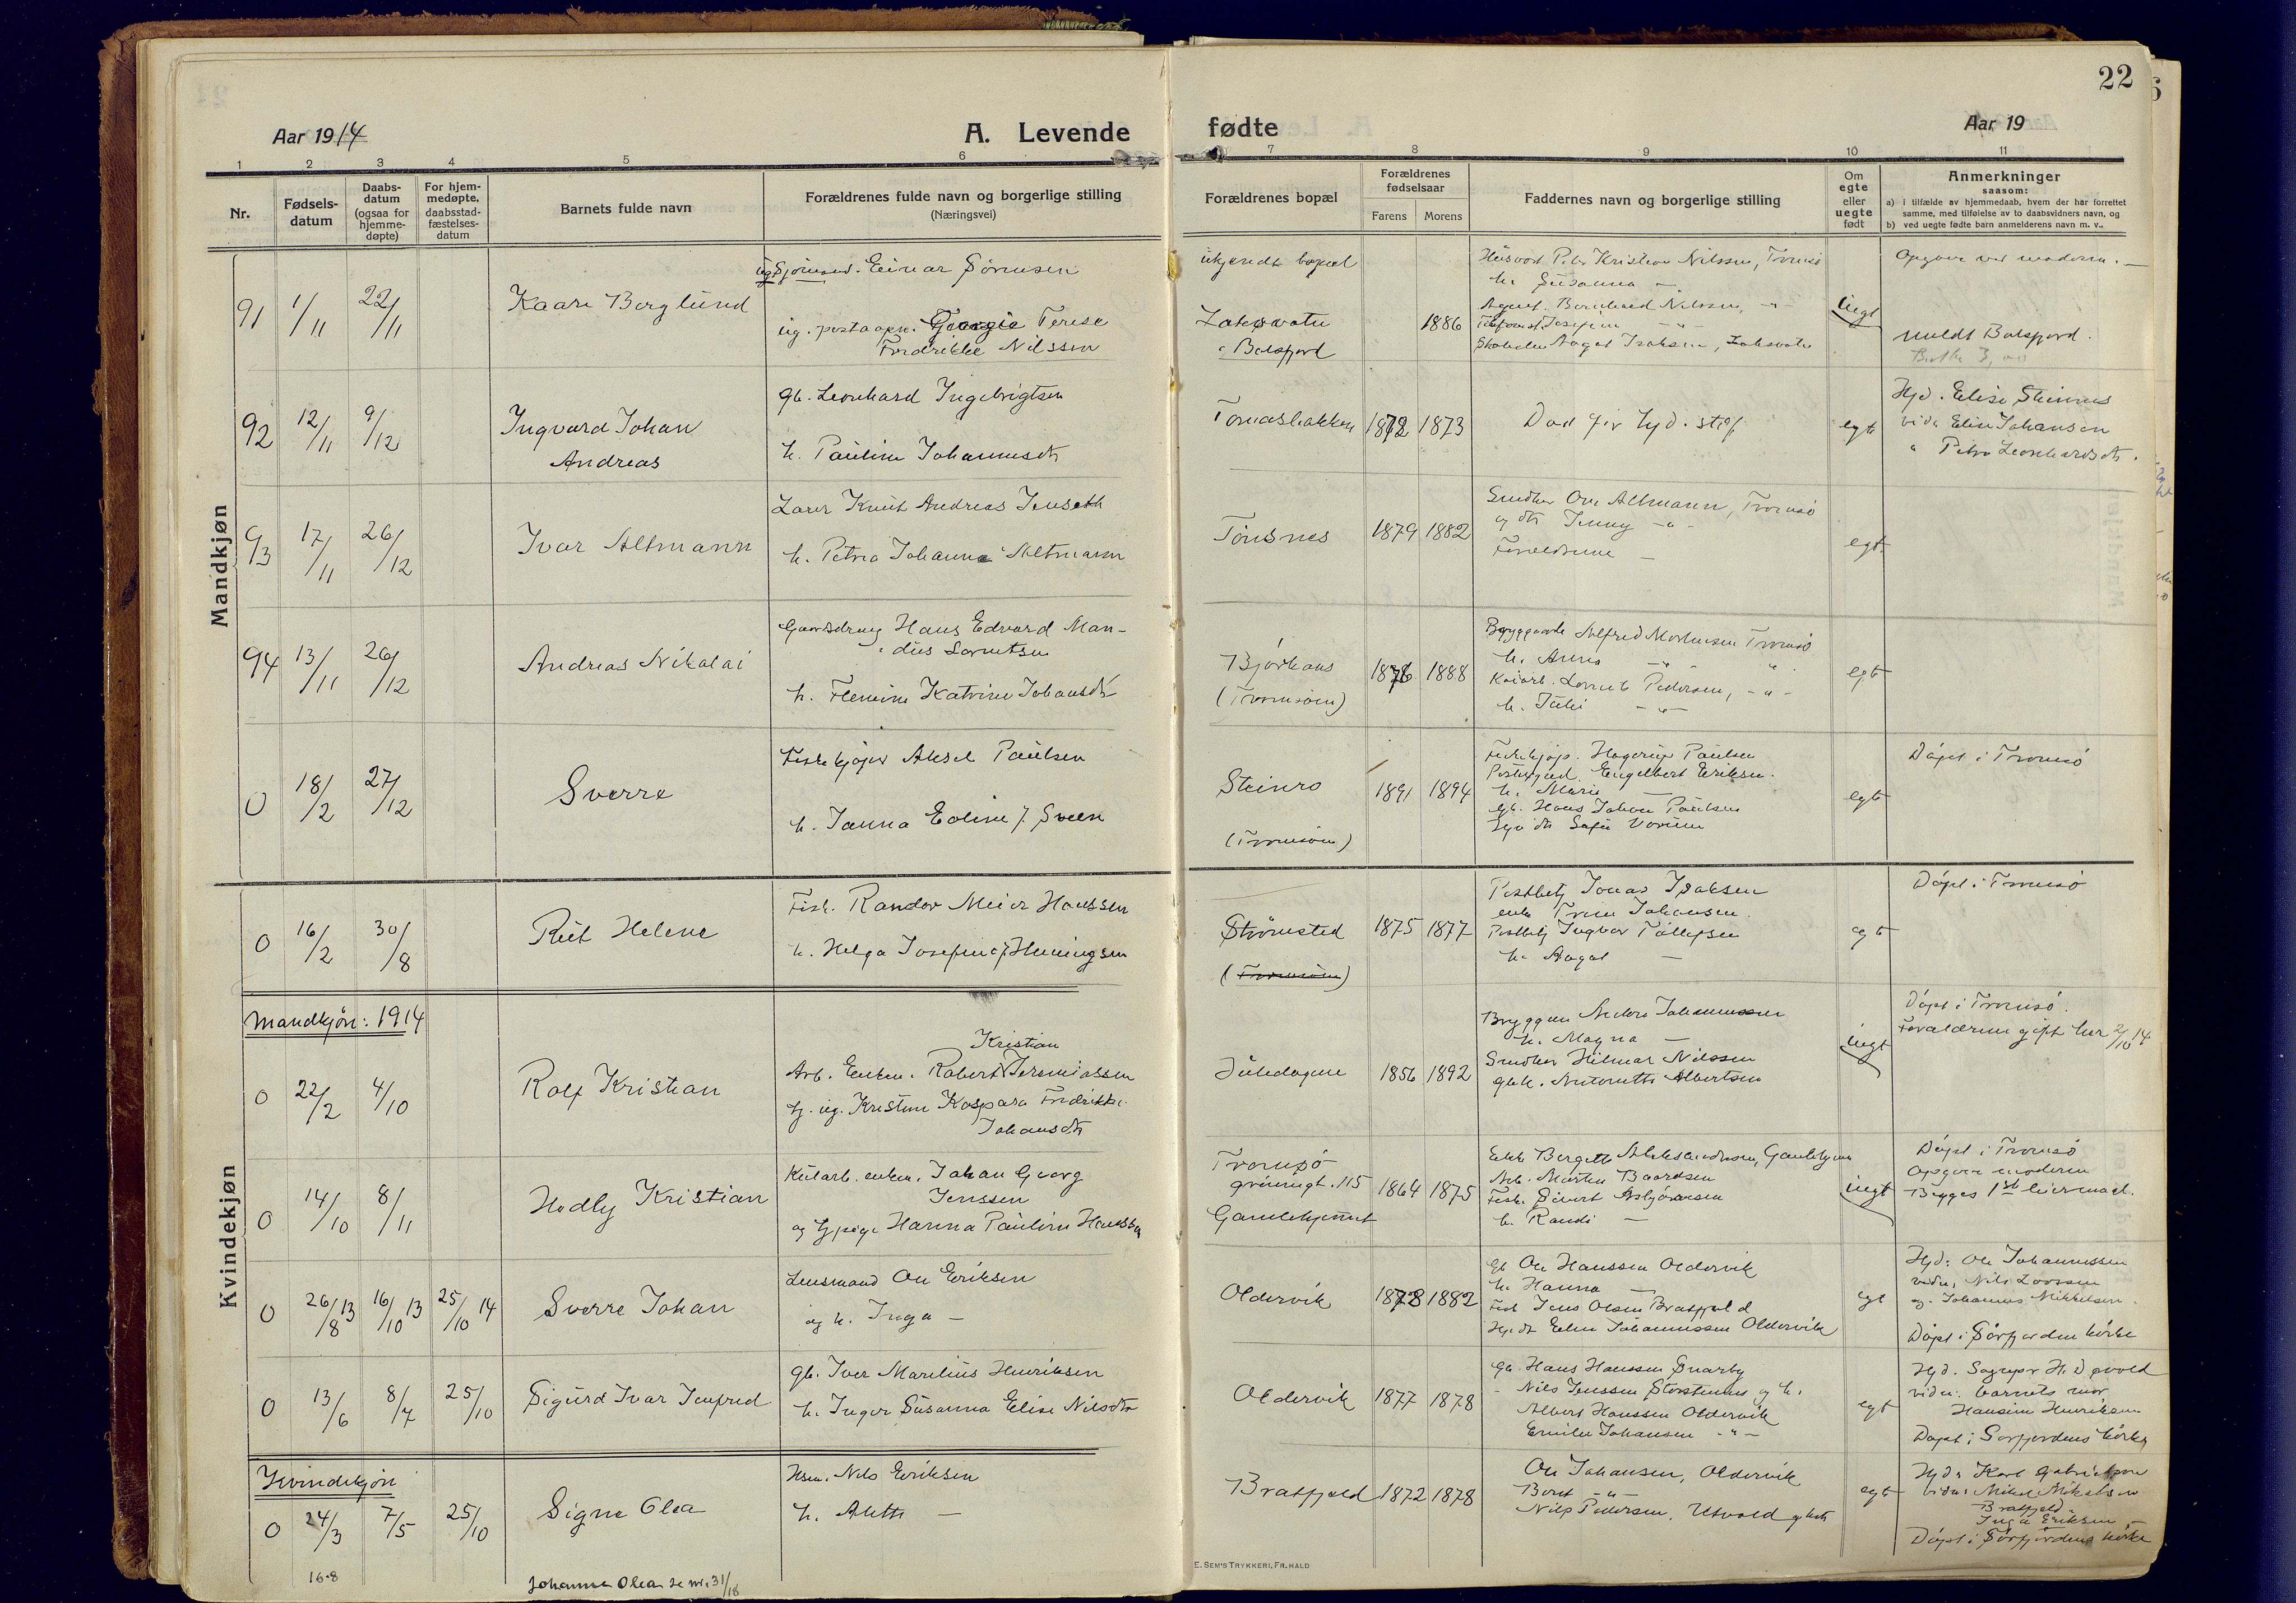 22
Aar 1914
A. Levende
fødte
Aar 19
1 2 3 4 5 6 7 8 9 10 11
Nr.
Fødsels-
datum
Daabs-
datum
(ogsaa for
hjemme-
døpte)
For hjem-
medøpte,
daabsstad-
fæstelses-
datum
Barnets fulde navn
Forældrenes fulde navn og borgerlige stilling
(Næringsvei)
Forældrenes bopæl
Forældrenes
fødselsaar
Farens Morens
Faddernes navn og borgerlige stilling
Om
egte
eller
uegte
født
Anmerkninger
saasom:
a) i tilfælde av hjemmedaab, hvem der har forrettet
samme, med tilføielse av to daabsvidners navn, og
b) ved uegte fødte barn anmelderens navn m. v..
Mandkjøn
91 1/11 22/11
Kaare Berglund
ug. Sjømand. Einar Sørensen
ug. postaapn. Georgie Terese
Fredrikke Nilssen
ukjendt bopæl
Laksvatn
i Balsfjord
1886
Husvært Peder Kristian Nilssen, Tromsø
h. Susanna —
Agent. Bernhard Nilssen, -"-
Josefine -"-
Aagot Isaksen, Laksvatn
uegt
Opgave ved moderen. —
meldt Balsfjord.
92 12/11 9/12
Ingvard Johan
Andreas
gb. Leonhard Ingebrigtsen
h. Pauline Johannesdtr
Tomasbakken 1872 1873
egte
Hjd. Elise Steinnes
vidn Elise Johansen
" Petra Leonhardsdtr.
93 17/11 26/12
Ivar Altmann
Lærer Knut Andreas Jenseth
h. Petra Johanne Altmann
Tønsnes 1879 1882
Snedker Ole Altmann, Tromsø
og dtr Jenny -"-
Forældrene —
egt.
94 13/11 26/12
Andreas Nikolai
Gaardsdreng Hans Edvard Man-
dius Lorentsen
h. Flemine Katrine Johansdtr
Bjørkaas
(Tromsøen)
1876 1888
Alfred Mortensen Tromsø
h. Anna -"- "
Lorentz Pedersen, -"-
h. Julie -"-
egt
0 18/2 27/12
Sverre
Fiskekjøper Aksel Paulsen
h. Janna Eoline f. Sveen
Steinro
(Tromsøen)
1891 1894
Fiskekjøp. Hagerup Paulsen
Engelbert Eriksen.
h. Marie —
gb. Hans Johan Paulsen
egt
Døpt i Tromsø
0 16/2 30/8
Rut Helene
Fisk. Randor Meier Hanssen
h. Helga Josefine f. Henningsen
Strømsted
(Tromsøen)
1875 1877
Postbetj Jonas Isaksen
enke Trine Johansen.
Postbetj Ingvar Tollefsen
h. Aagot —
egt
Døpt i Tromsø
Mandkjøn: 1914
0 22/2 4/10
Rolf Kristian
Kristian
Arb. Enkem. Robert Jeremiassen
tj. ug. Kristine Kaspara Fredrikke
Johansdtr
1856 1892
Anders Johannessen
h. Magna —
Snedker Hilmar Nilssen
gbk. Antonette Albertsen
uegt
Døpt i Tromsø.
Forældrene gift her 2/10 14
Kvindekjøn
0 14/10 8/11
Hedly Kristian
Kularb. enkem. Johan Georg
Jenssen
og tj.pige Hanna Pauline Hanssen
Tromsø
grønnegt. 115
Gamlehjemmet
1864 1875
Enke Bergitte Aleksandersen, Gamlehjem
Arb. Morten Baardsen
Fisk. Sivert Asbjørnsen
h. Randi —
uegt
Døpt i Tromsø
Opgave moderen
Begges 1st leiermaal.
0 26/8 13 16/10 13 25/10 14
Sverre Johan
Lensmand Ole Eriksen
og h. Inga —
Oldervik 1878 1882
gb Ole Hanssen Oldervik
h. Hanna —
Fisk Jens Olsen Bratfjeld
Elen Johannessen Oldervik
egt
Hjd: Ole Johannessen
vidn, Nils Larssen
og Johannes Mikkelsen.
Døpt i Sørfjorden kirke
0 13/6 8/7 25/10
Sigurd Ivar Jenfred
gb. Iver Marelius Henriksen
h. Inger Susanna Elise Nilsdtr
Oldervik 1877 1878
gb. Hans Hanssen Snarby
- Nils Jenssen Storsteinnes og h.
Albert Hanssen Oldervik
Emilie Johansen -"-
egt
vidn: barnets mor
Hansine Henriksen
Døpt i Sørfjordens kirke
Kvindekjøn
0 24/3 7/5 25/10
Signe Olea
Hsm. Nils Eriksen
h. Alette —
Bratfjeld 1872 1878
Ole Johansen, Oldervik
Berit -"-
Nils Pedersen,
egt
Hjd: Karl Gabrielsen
vidn: Mikal Mikalsen
Bratfjeld.
Inga Eriksen —
Døpt i Sørfjordens kirke
16-8
Johanna Olea se nr. 31/18
E. SEM'S TRYKKERI, FR.HALD